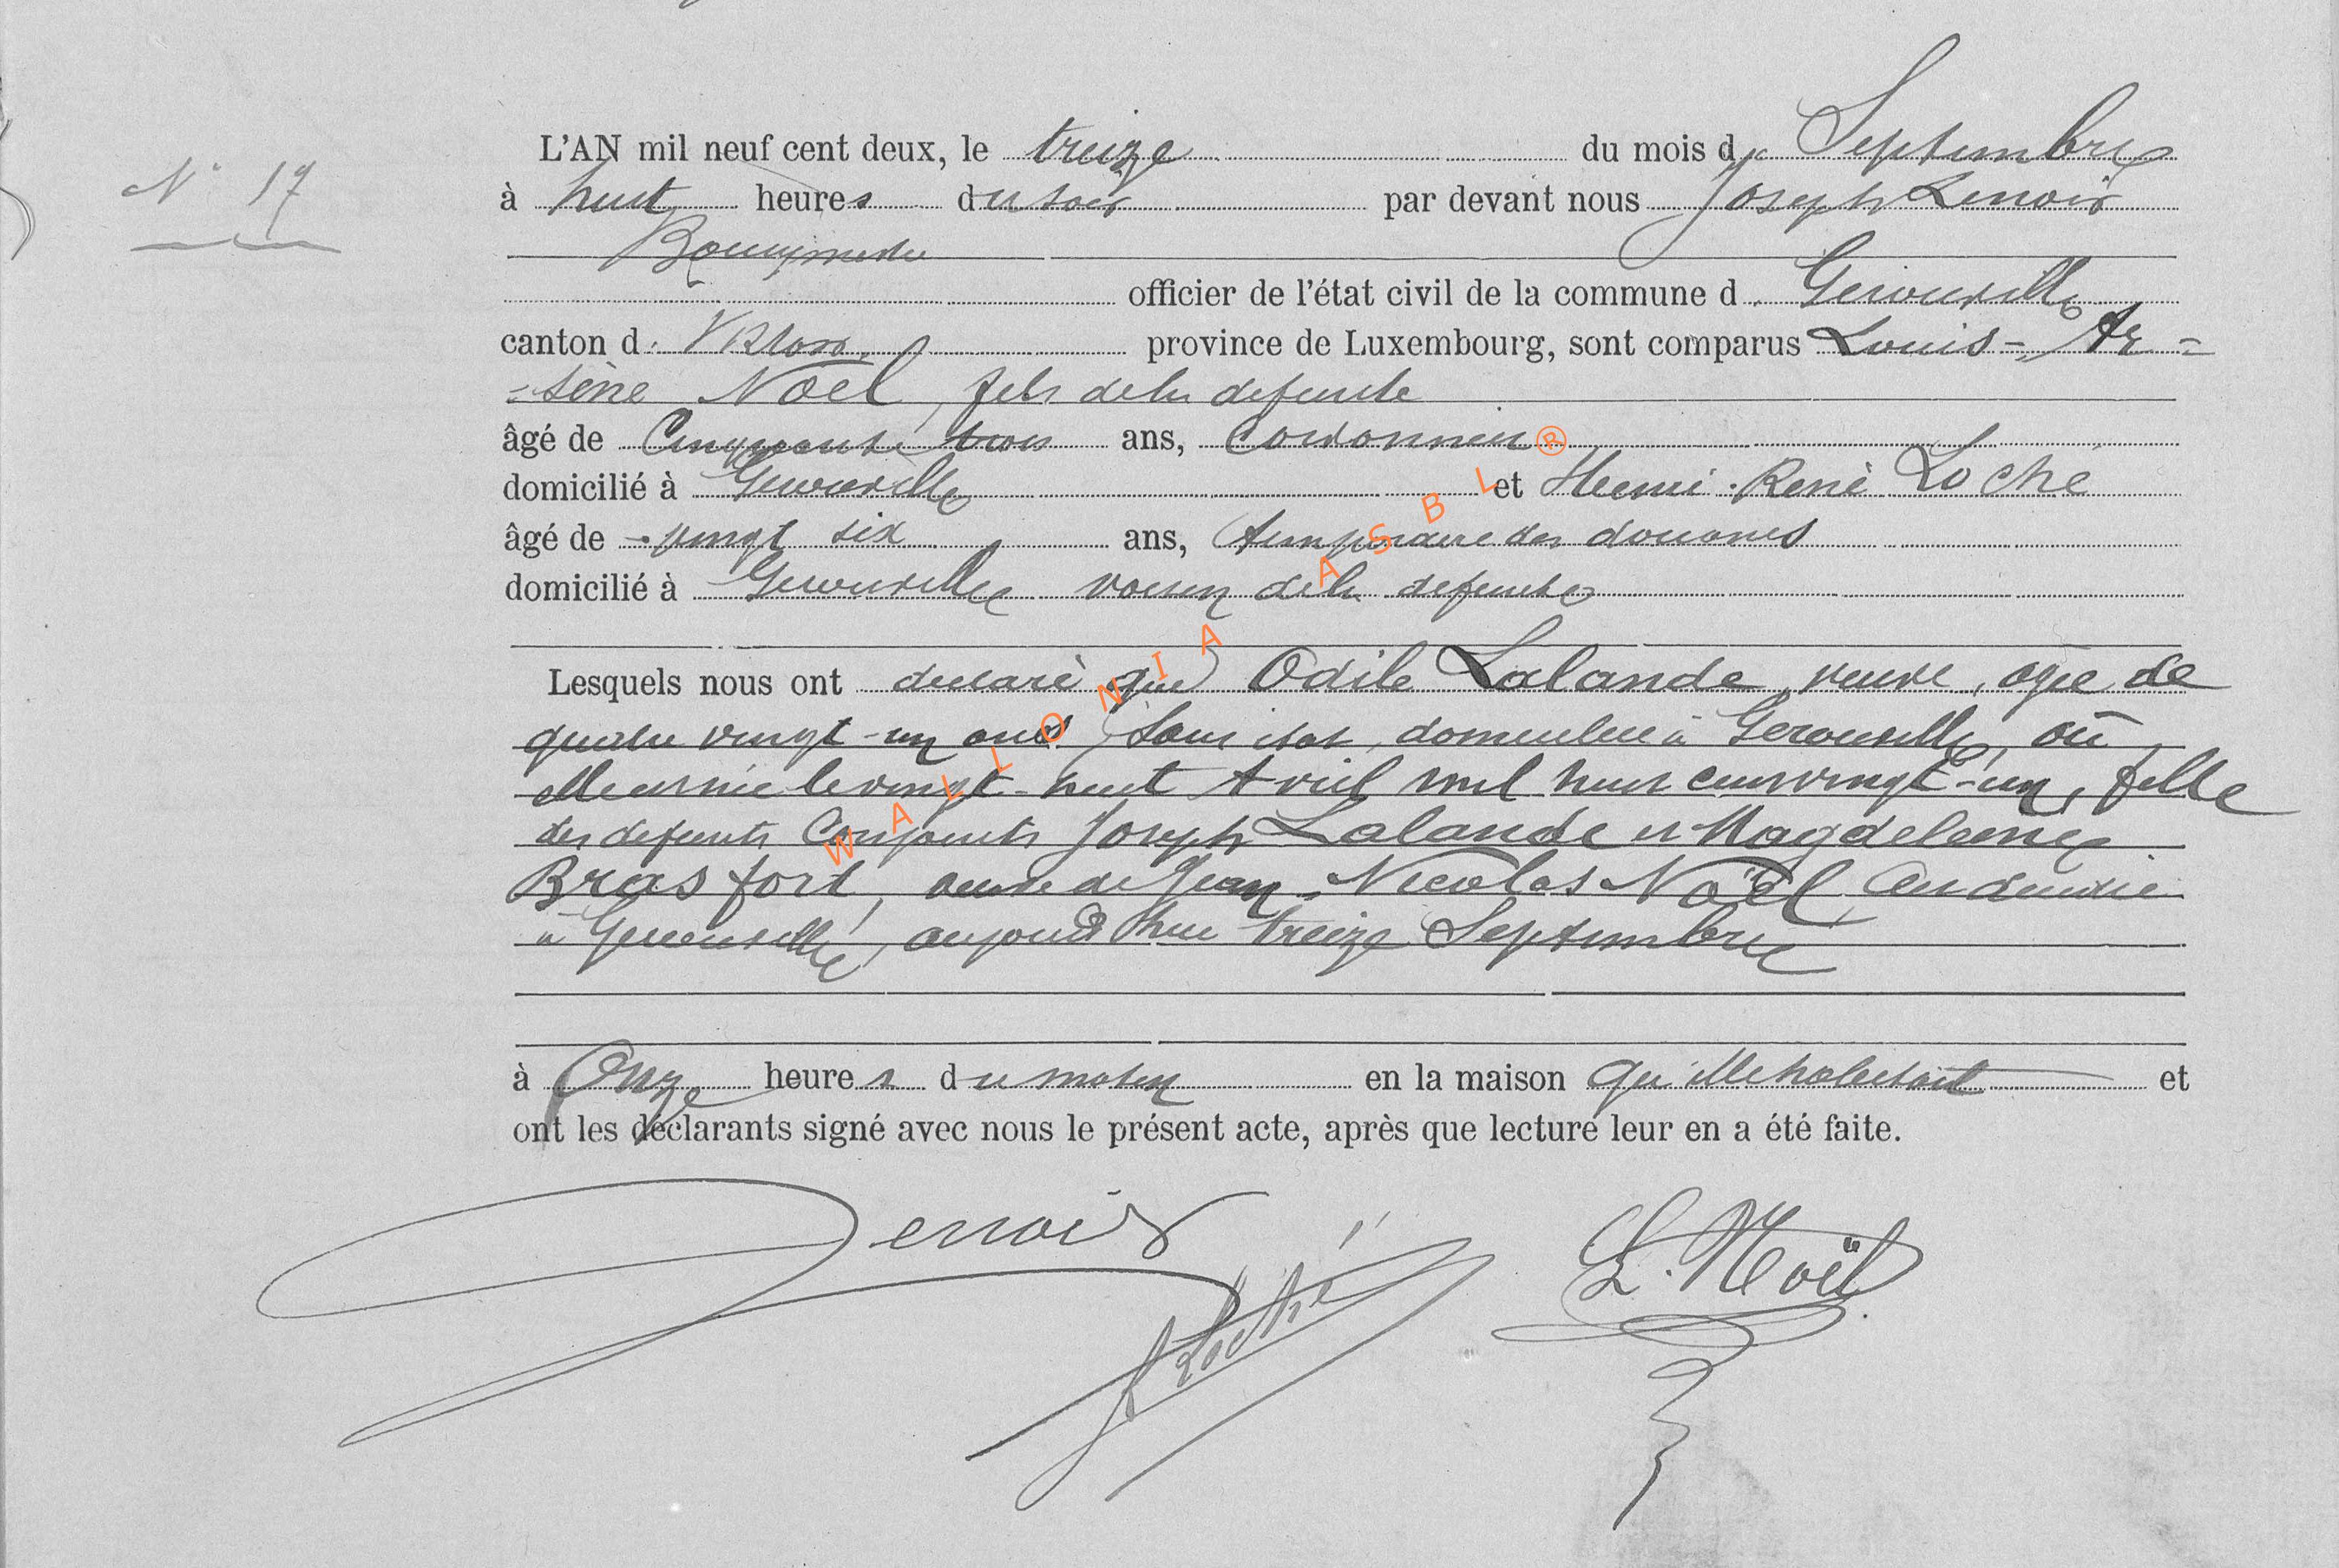 N° 17
L'AN mil neuf cent deux, le treize du mois de Septembre
à huit heures du soir par devant nous Joseph Lenoir
Bourgmestre
officier de l'état civil de la commune d. Gerouville
canton d. Virton, province de Luxembourg, sont comparus Louis-Ar=
=sène Noël, fils de la defunte
âgé de Cinquante trois ans, Cordonnier
domicilié à Gerouville et Henri-René Loché
âgé de vingt six ans, temporaire des douanes
domicilié à Gerouville voisin de la defunte
Lesquels nous ont declaré que Odile Lalande, veuve, agée de
quatre vingt-un ans, Sans état, domiciliée à Gerouville, où
elle est née le vingt-huit Avril mil huit cent vingt-un, fille
des defunts Conjoints Joseph Lalande et Magdeleine
Brasfort, veuve de Jean-Nicolas Noël, est décédée
à Gerouville, aujourd'hui treize Septembre
à Onze heures du matin en la maison qu'elle habitait et
ont les déclarants signé avec nous le présent acte, après que lecture leur en a été faite.
Lenoir
Loché
L. Noël
WALLONIA ASBL ®